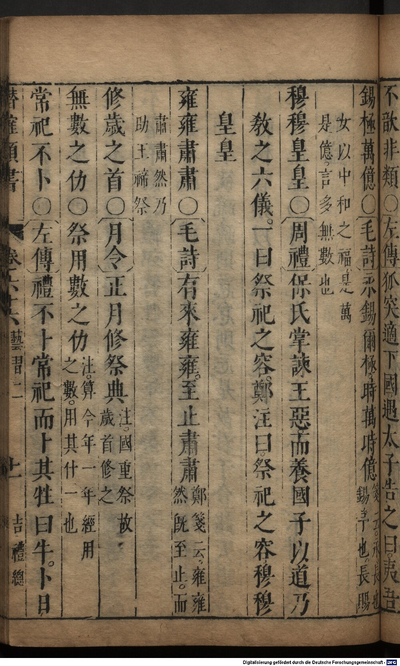 不歆非類○左傳狐突適下國遇太子告之曰夷吾
錫極萬億○毛詩永錫爾極時萬時億
錫予也長賜
女以中和之福是萬
是億言多無數也
穆穆皇皇○周禮保氏掌諫王惡而養國子以道乃
教之六儀一曰祭祀之容鄭注曰祭祀之容穆穆
皇皇
雍雍肅肅○毛詩有來雍雍至止肅肅鄭箋云雍雍
然既至止而
肅肅然乃
助王禘祭
修歲之首○月令正月修祭典注國重祭故
歲首修之
無數之仂○祭用數之仂注算今年一年經用
之數用其什一也
常祀不卜○左傳禮不卜常祀而卜其牲曰牛卜日
類書 卷之 二 上 吉禮總
Digitalisierung gefördert durch die Deutsche Forschungsgemeinschaft - DFG